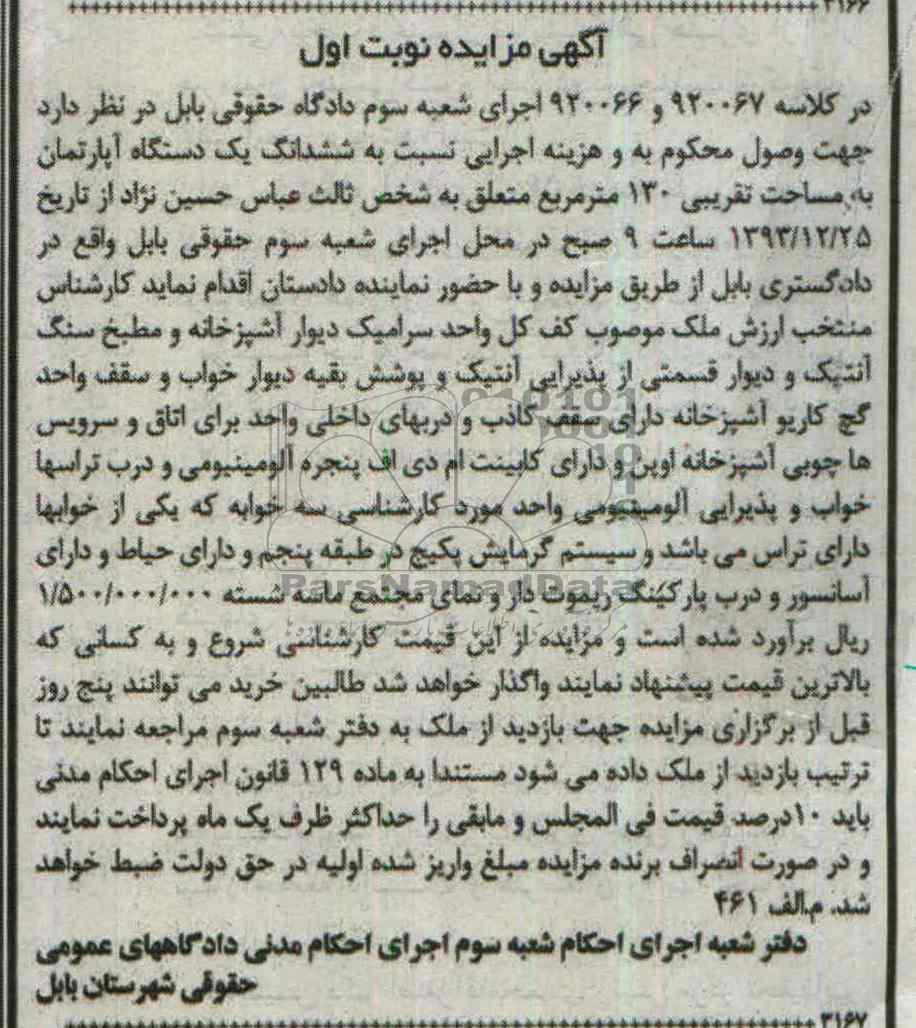 ۳۱۶۶
آگهی مزایده نوبت اول
در کلاسه ۹۲۰۰۶۷ و ۹۲۰۰۶۶ اجرای شعبه سوم دادگاه حقوقی بابل در نظر دارد
جهت وصول محکوم به و هزینه اجرایی نسبت به ششدانگ یک دستگاه آپارتمان
به مساحت تقریبی ۱۳۰ مترمربع متعلق به شخص ثالث عباس حسین نژاد از تاریخ
۱۳۹۳/۱۲/۲۵ ساعت ۹ صبح در محل اجرای شعبه سوم حقوقی بابل واقع در
دادگستری بابل از طریق مزایده و با حضور نماینده دادستان اقدام نماید کارشناس
منتخب ارزش ملک موصوب کف کل واحد سرامیک دیوار آشپزخانه و مطبخ سنگ
آنتیک و دیوار قسمتی از پذیرایی آنتیک و پوشش بقیه دیوار خواب و سقف واحد
گچ کاریو آشپزخانه دارای سقف کاذب و دربهای داخلی واحد برای اتاق و سرویس
ها چوبی آشپزخانه اوپن و دارای کابینت ام دی اف پنجره آلومینیومی و درب تراسها
خواب و پذیرایی آلومینیومی واحد مورد کارشناسی سه خوابه که یکی از خوابها
دارای تراس می باشد و سیستم گرمایش پکیج در طبقه پنجم و دارای حیاط و دارای
ParsNamadData
آسانسور و درب پارکینگ ریموت دار و نمای مجتمع ماسه شسته ۱/۵۰۰/۰۰۰/۰۰۰
ریال برآورد شده است و مزایده از این قیمت کارشناسی شروع و به کسانی که
بالاترین قیمت پیشنهاد نمایند واگذار خواهد شد طالبین خرید می توانند پنج روز
قبل از برگزاری مزایده جهت بازدید از ملک به دفتر شعبه سوم مراجعه نمایند تا
ترتیب بازدید از ملک داده می شود مستندا به ماده ۱۲۹ قانون اجرای احکام مدنی
باید ۱۰درصد قیمت فی المجلس و مابقی را حداکثر ظرف یک ماه پرداخت نمایند
و در صورت انصراف برنده مزایده مبلغ واریز شده اولیه در حق دولت ضبط خواهد
شد. م.الف ۴۶۱
دفتر شعبه اجرای احکام شعبه سوم اجرای احکام مدنی دادگاههای عمومی
حقوقی شهرستان بابل
۳۱۶۷